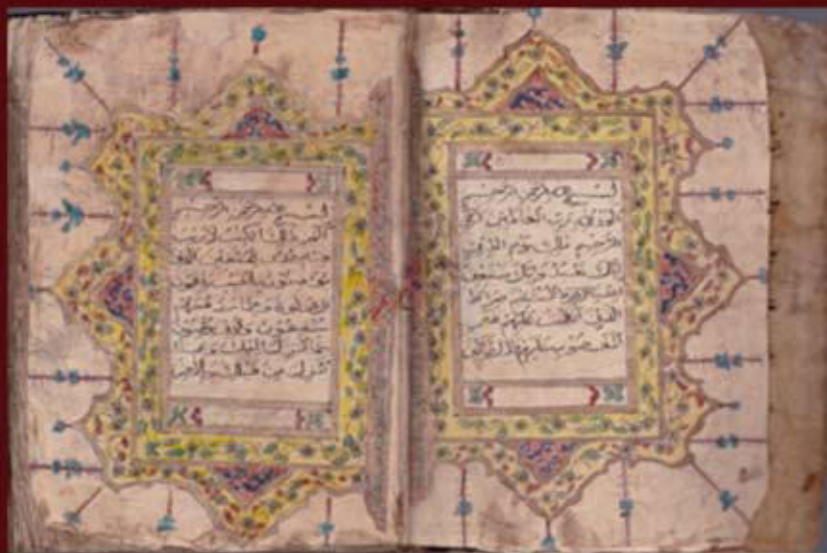 بسم الله الرحمن الرحيم
الحمد لله رب العالمين الرحمن
الرحيم ملك يوم الدين
اياك نعبد واياك نستعين
اهدنا الصراط المستقيم صراط
الذين انعمت عليهم غير
المغضوب عليهم ولا الضالين
بسم الله الرحمن الرحيم
الم ذلك الكتب لا ريب
فيه هدى للمتقين الذين
يؤمنون بالغيب ويقيمون
الصلوة ومما رزقنهم
ينفقون والذين يؤمنون
بما انزل اليك وما
انزل من قبلك وبالاخرة